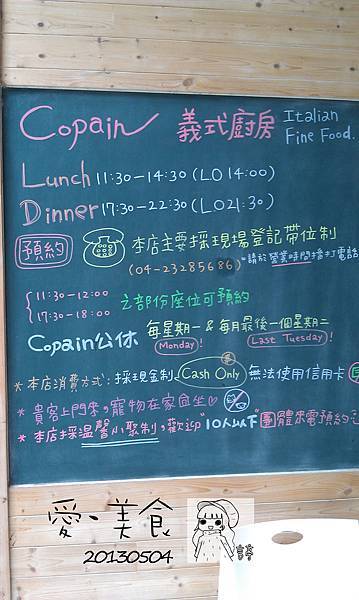 Copain 義式廚房 Italian Fine Food.
Lunch 11:30-14:30 (LO 14:00)
Dinner 17:30-22:30 (LO 21:30)
預約 本店主要採現場登記帶位制
(04-23285686) *請於營業時間撥打電話
11:30-12:00
17:30-18:00 之部份座位可預約
Copain公休 每星期一 & 每月最後一個星期二
Monday! Last Tuesday!
*本店消費方式:採現金制 Cash Only 無法使用信用卡
*貴客上門來,寵物在家宜坐♡
*本店採溫馨小聚制,歡迎"10人以下"團體來電預約
愛、美食
20130504